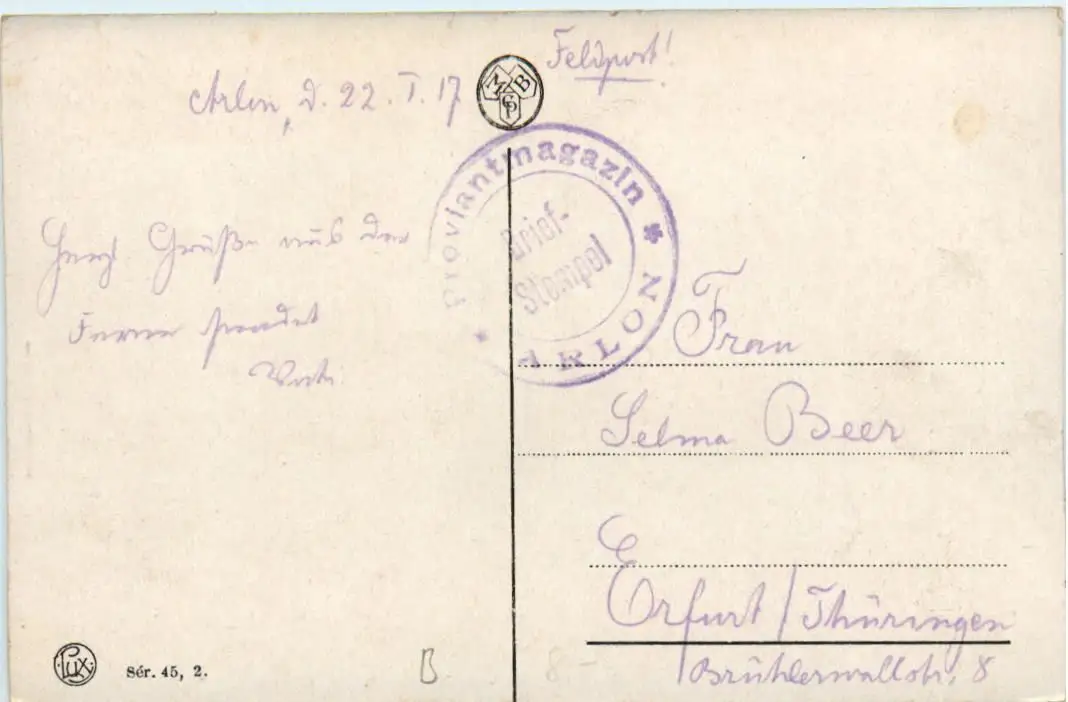 Feldpost!
Arlon, d. 22. I. 17
MBCSP
Proviantmagazin * ARLON *
Brief-
Stempel
Herzl. Grüße aus der
Ferne sendet
Frau
Selma Beer
Erfurt / Thüringen
Brühlerwallstr. 8
Lux
Sér. 45, 2.
B
8 –